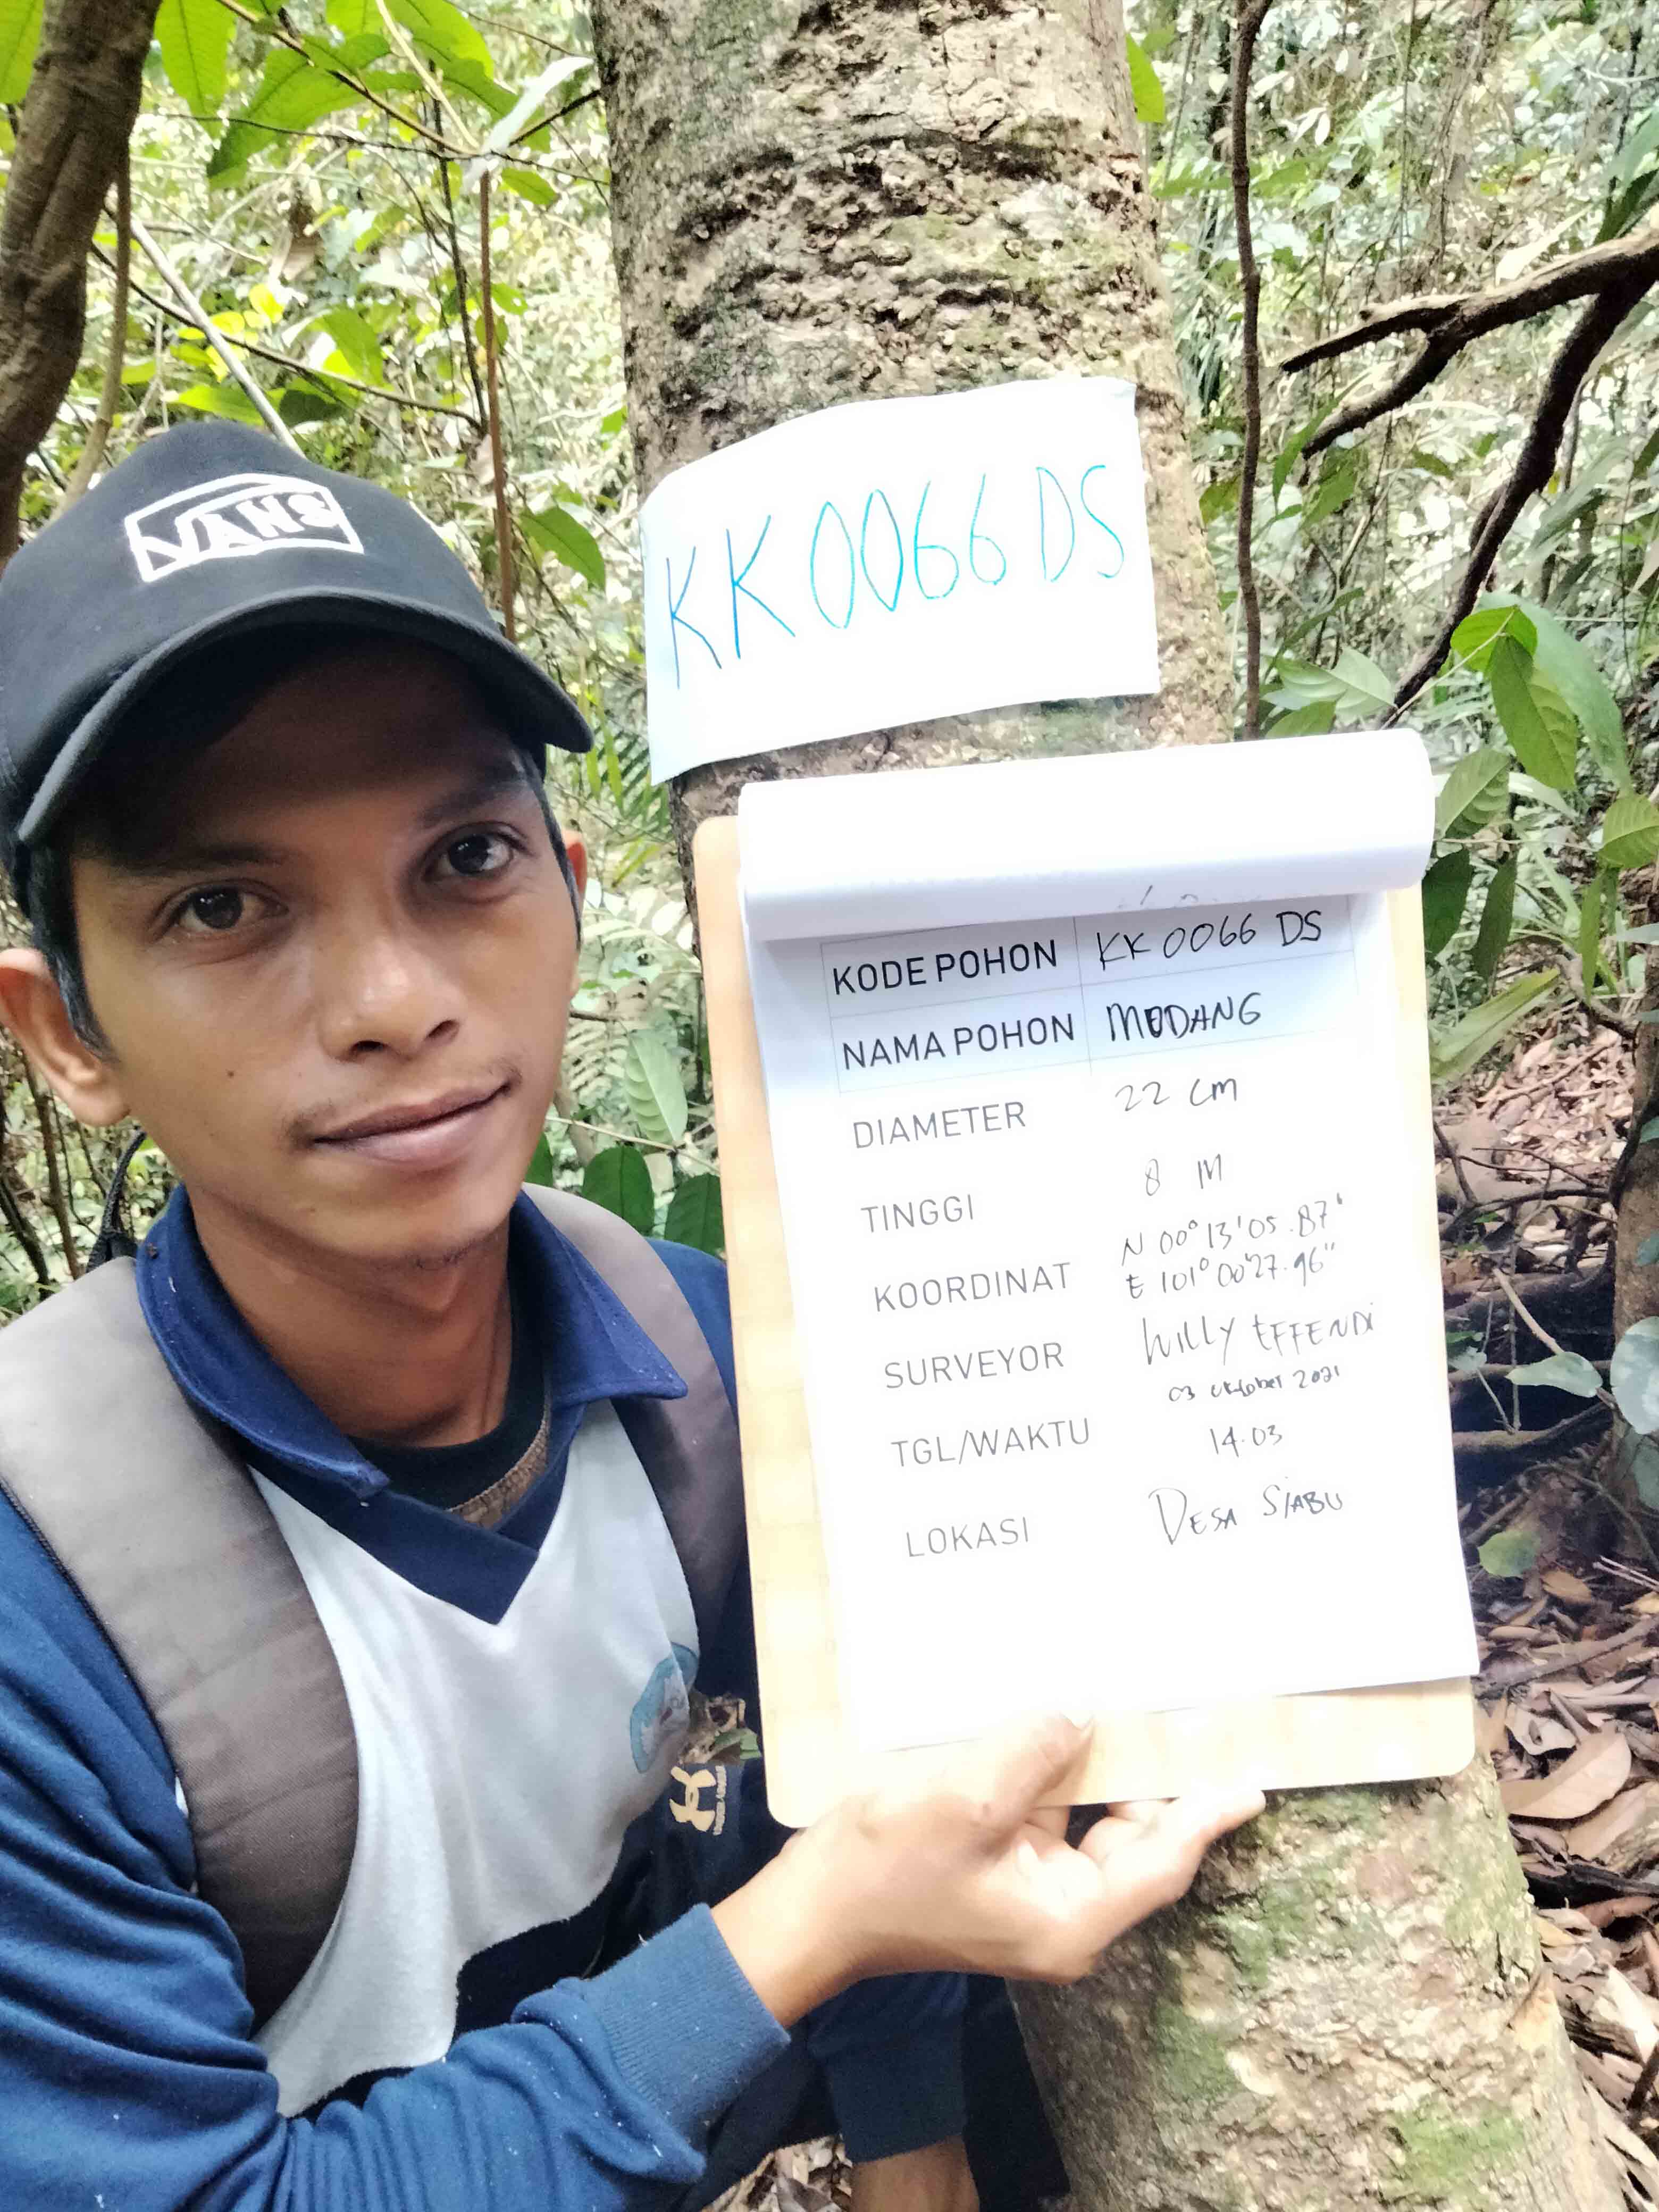 VANS
KK 0066 DS
KODE POHON KK 0066 DS
NAMA POHON MODANG
DIAMETER 22 CM
TINGGI 8 M
KOORDINAT N 00° 13' 05.87"
E 101° 00' 27.96"
SURVEYOR WILLY EFFENDI
TGL/WAKTU 03 Oktober 2021
14.03
LOKASI DESA SIABU